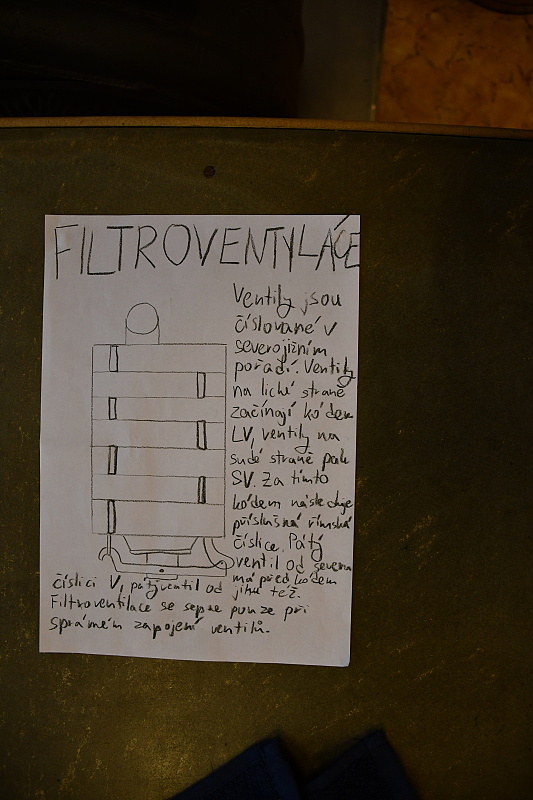 FILTROVENTYLÁCE
Ventily jsou
číslované v
severojižním
pořadí. Ventily
na liché straně
začínají kódem
LV, ventily na
sudé straně pak
SV. Za tímto
kódem následuje
příslušná římská
číslice. Pátý
ventil od severu
má před kódem
číslici V, pátý ventil od jihu též.
Filtroventilace se sepne pouze při
správném zapojení ventilů.